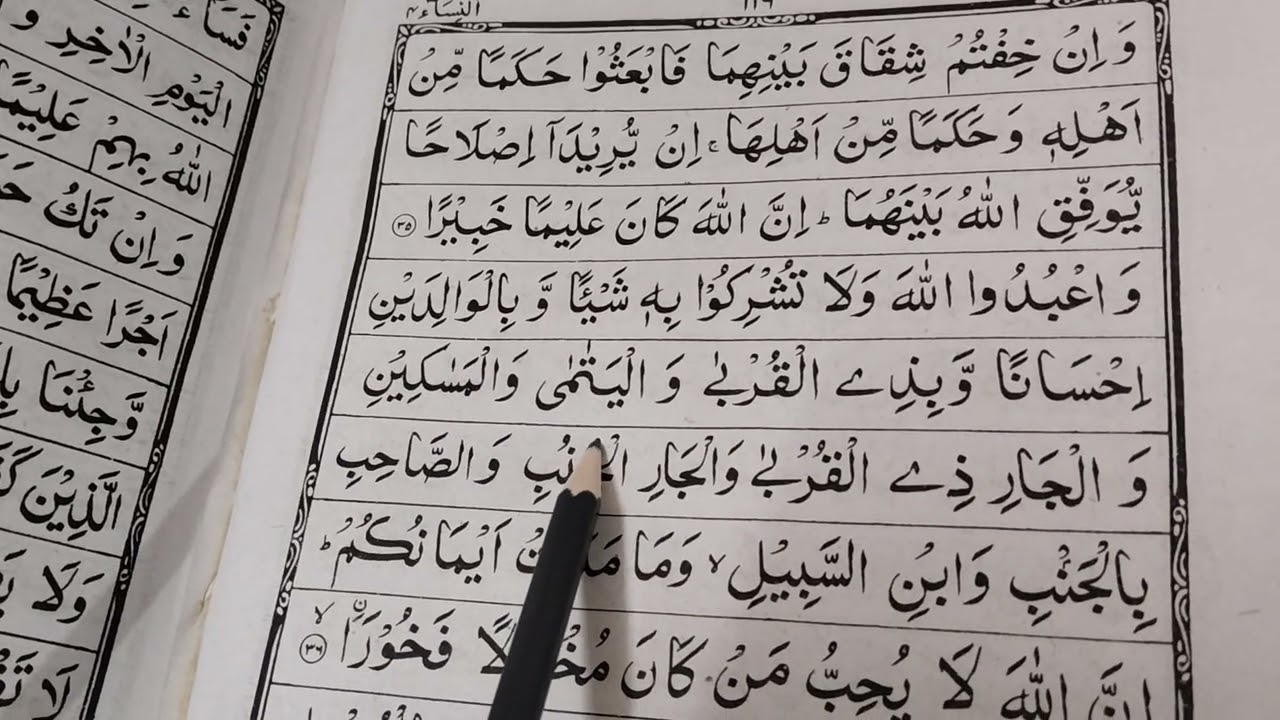 النساء ٤
١١٦
وَ اِنْ خِفْتُمْ شِقَاقَ بَيْنِهِمَا فَابْعَثُوْا حَكَمًا مِّنْ
اَهْلِهٖ وَ حَكَمًا مِّنْ اَهْلِهَا ۚ اِنْ يُّرِيْدَاۤ اِصْلَاحًا
يُّوَفِّقِ اللّٰهُ بَيْنَهُمَا ؕ اِنَّ اللّٰهَ كَانَ عَلِيْمًا خَبِيْرًا ٣٥
وَ اعْبُدُوا اللّٰهَ وَلَا تُشْرِكُوْا بِهٖ شَيْـًٔا وَّ بِالْوَالِدَيْنِ
اِحْسَانًا وَّ بِذِے الْقُرْبٰى وَ الْيَتٰمٰى وَالْمَسٰكِيْنِ
وَ الْجَارِ ذِے الْقُرْبٰى وَالْجَارِ الْجُنُبِ وَ الصَّاحِبِ
بِالْجَنْۢبِ وَابْنِ السَّبِيْلِ ۙ وَمَا اَيْمَانُكُمْ ؕ
اِنَّ اللّٰهَ لَا يُحِبُّ مَنْ كَانَ فَخُوْرَا ۙ ٣٦
نِسَآءَ
الْيَوْمِ الْاٰخِرِ وَ
اللّٰهُ بِهِمْ عَلِيْمًا
وَ اِنْ تَكُ
اَجْرًا عَظِيْمًا
وَّجِئْنَا
الَّذِيْنَ
وَلَا
لَا